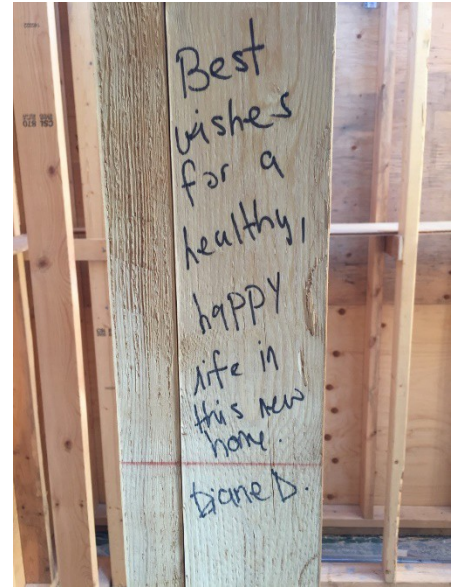 Best
wishes
for a
healthy,
happy
life in
this new
home.
Diane D.